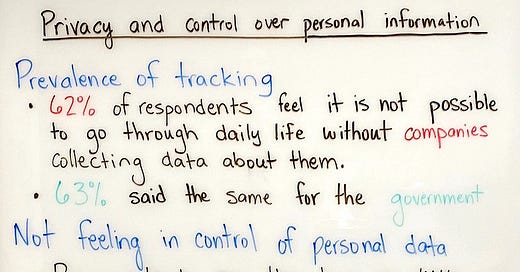 Privacy and control over personal information
Prevalence of tracking
• 62% of respondents feel it is not possible
to go through daily life without companies
collecting data about them.
• 63% said the same for the government
Not feeling in control of personal data